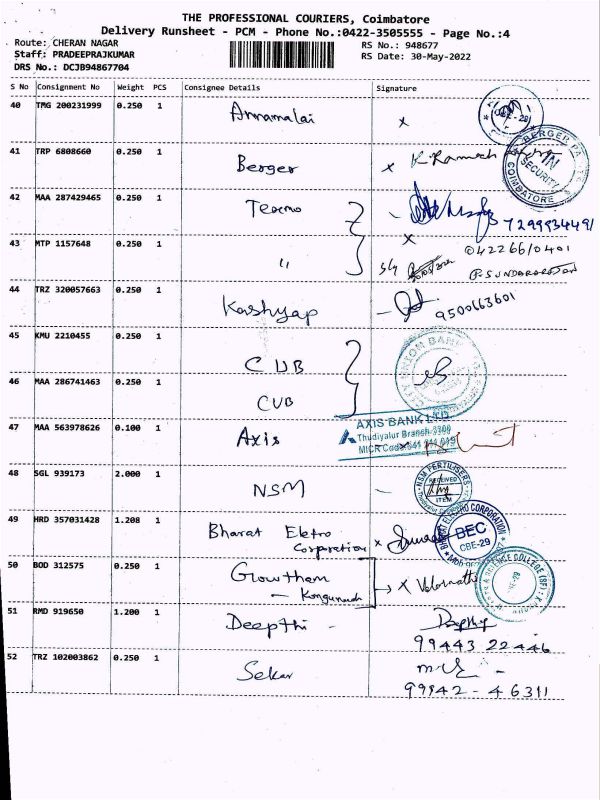 THE PROFESSIONAL COURIERS, Coimbatore
Delivery Runsheet - PCM - Phone No.:0422-3505555 - Page No.:4
Route: CHERAN NAGAR
RS No.: 948677
Staff: PRADEEPRAJKUMAR
RS Date: 30-May-2022
DRS No.: DCJB94867704
S No Consignment No Weight PCS Consignee Details Signature
40 TMG 200231999 0.250 1 Annamalai x
41 TRP 6808660 0.250 1 Berger x K. Ramesh
BERGER
IN
SECURITY
COIMBATORE
42 MAA 287429465 0.250 1 Texmo
7299934491
43 MTP 1157648 0.250 1 " x
04226610401
P. SUNDARARAJAN
44 TRZ 320057663 0.250 1 Kashyap
9500663601
45 KMU 2210455 0.250 1 CUB
CITY UNION BANK
46 MAA 286741463 0.250 1 CUB
47 MAA 563978626 0.100 1 Axis
AXIS BANK LTD.
Thudiyalur Branch-3300
MICR Code:641 211 019
48 SGL 939173 2.000 1 NSM
NSM FERTILISERS
RECEIVED
ITEM
49 HRD 357031428 1.208 1 Bharat Elctro
Corporation x
BHARAT ELECTRO CORPORATION
BEC
CBE-29
50 BOD 312575 0.250 1 Growtham
- Kongunadu x
SCIENCE COLLEGE
51 RMD 919650 1.200 1 Deepthi -
99443 22446
52 TRZ 102003862 0.250 1 Sekar
99942 - 46311